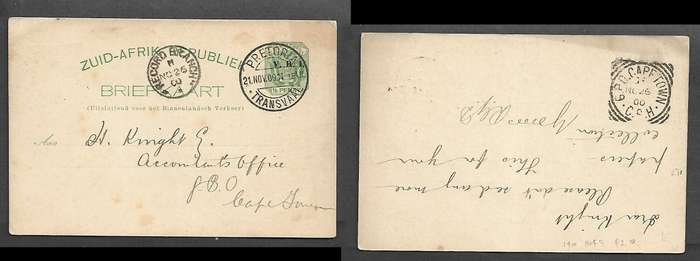 ZUID-AFRIK REPUBLIEK
BRIEFKAART
(Uitsluitend voor het Binnenlandsch Verkeer)
RECORD BRANCH
H
NO 26
00
PRETORIA
21.NOV.00
TRANSVAAL
V.R.I.
PENNY
Aan
H. Knight E.
Accountants Office
G.P.O
Cape Town
G.P.O. CAPETOWN
NO 26
00
C.G.H.
Dear Knight
Please don't send any more
papers. This for your
collection
Yours